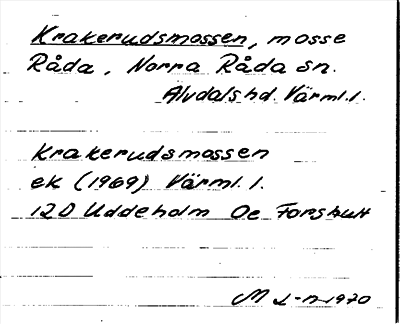 Krakerudsmossen, mosse
Råda, Norra Råda sn.
Älvdals hd. Värml. l.
Krakerudsmossen
ek (1969) Värml. l.
12D Uddeholm 0e Forshult
1970